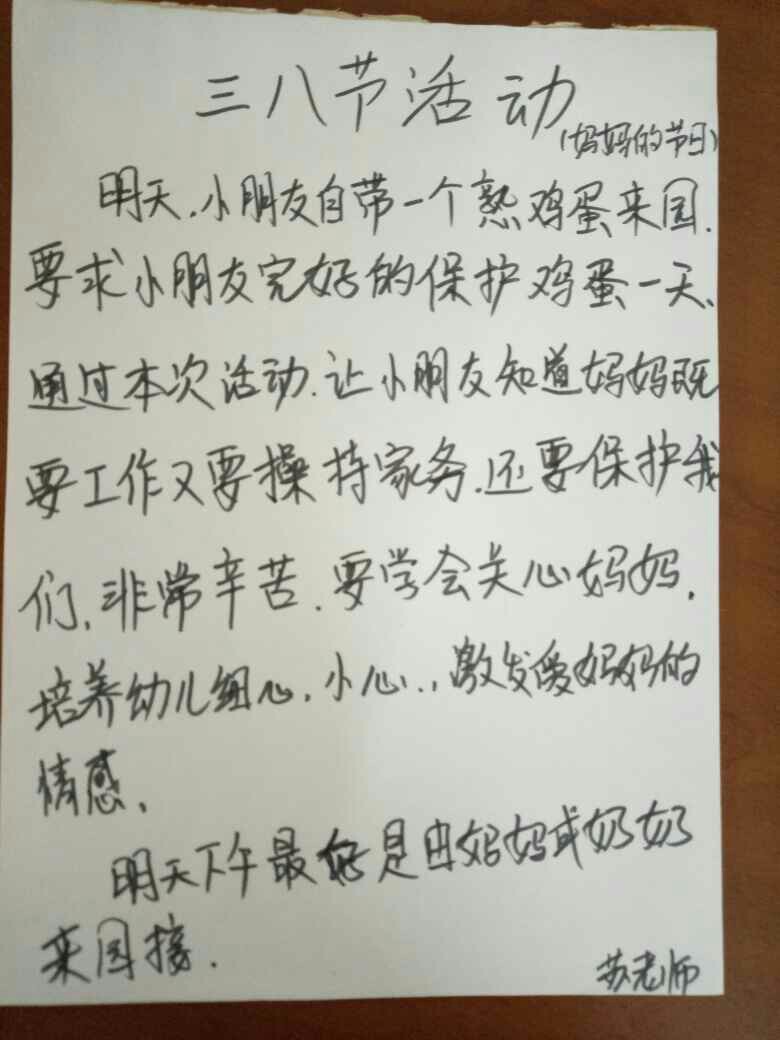 三八节活动
(妈妈的节日)
明天.小朋友自带一个熟鸡蛋来园.
要求小朋友完好的保护鸡蛋一天、
通过本次活动.让小朋友知道妈妈既
要工作又要操持家务.还要保护我
们、非常辛苦.要学会关心妈妈.
培养幼儿细心.小心.,激发爱妈妈的
情感、
明天下午最好是由妈妈或奶奶
来园接.
苏老师